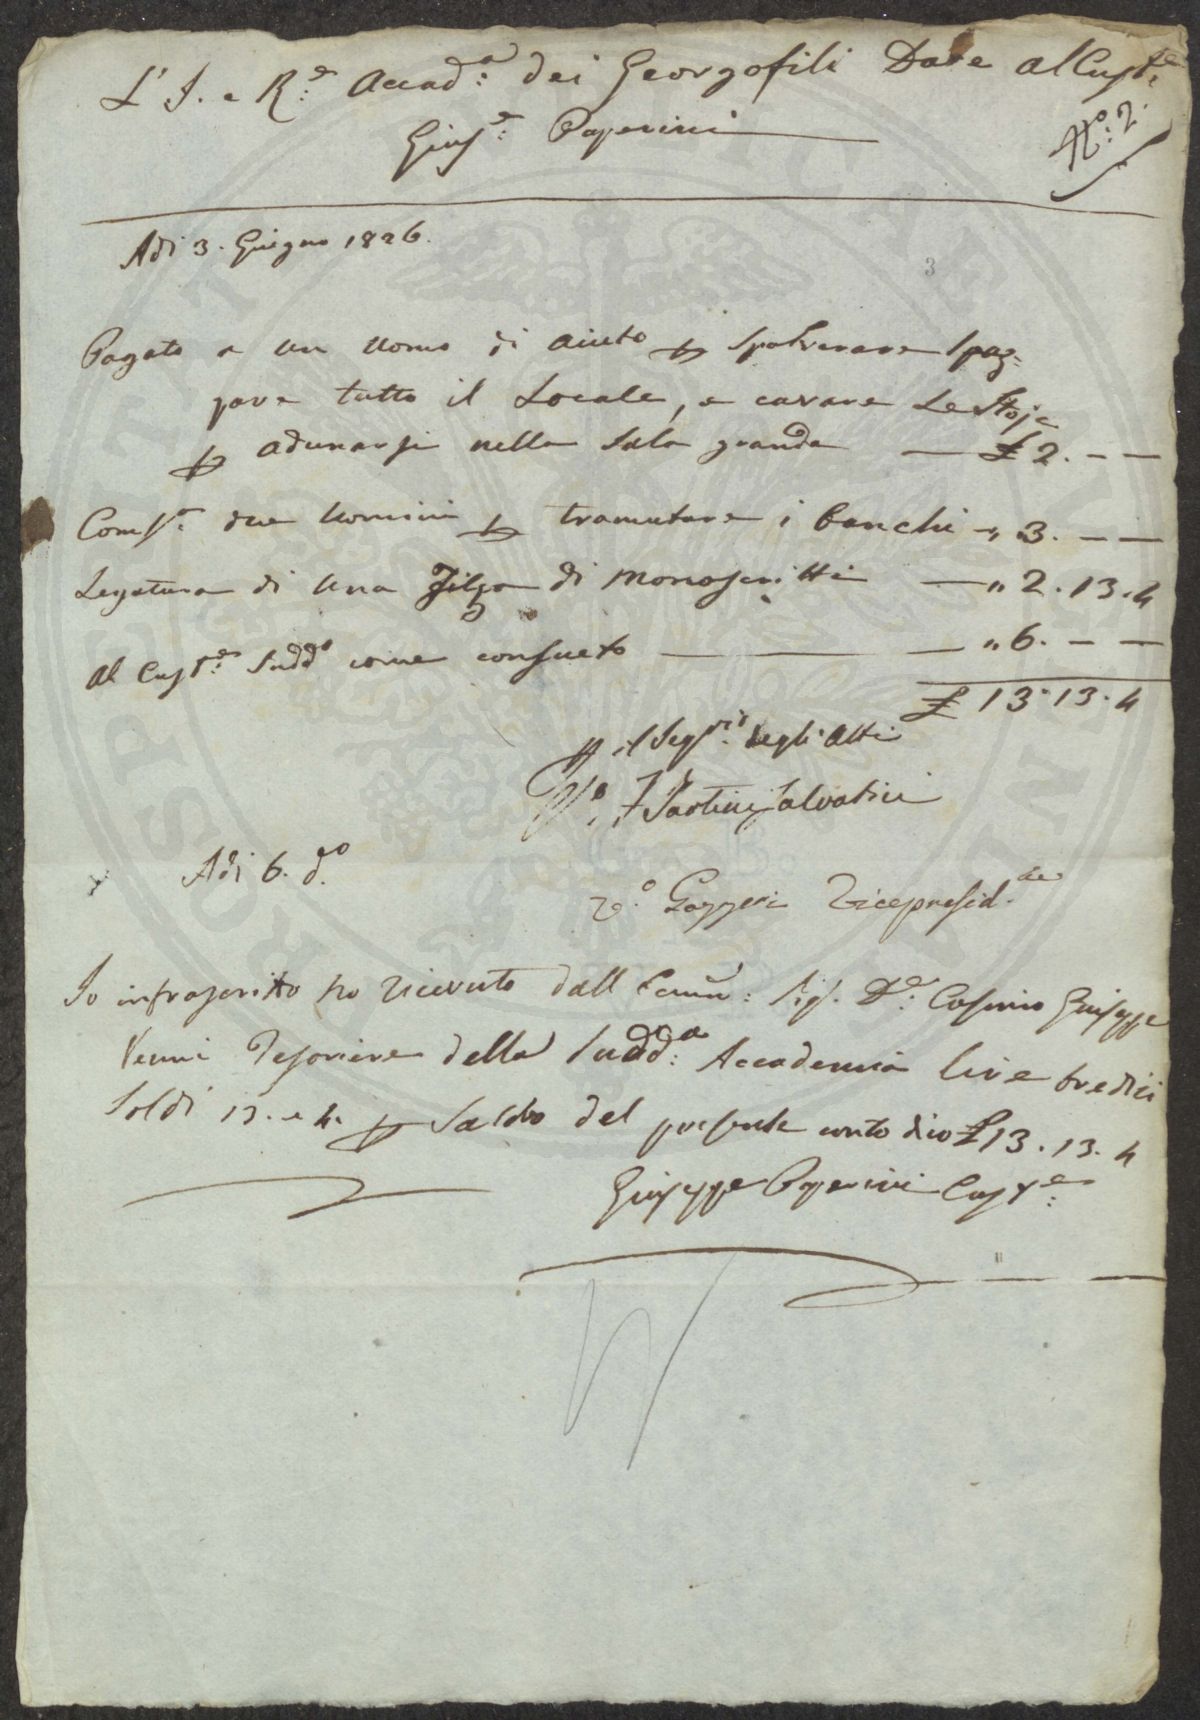 L'I. e R.e Accad.a dei Georgofili Dare al Cust.e
Gius.e Paperini
N.o 2.
Adi 3. Giugno 1826.
3
Pagato a un Uomo di aiuto p spolverare spaz=
zare tutto il Locale, e cavare Le Stoje
p adunarsi nella Sala grande — £ 2. — —
Comp.e due Uomini p tramutare i banchi — " 3. — —
Legatura di Una Filza di Manoscritti — " 2. 13. 4
Al Cust.e Sudd.o come consueto — — " 6. — —
£ 13. 13. 4
p il Seg.rio degli Atti
F Tartini Salvatici
Adi 6. d.o
V.o Gazzeri Vicepresid.te
Io infrascritto ho ricevuto dall Sig. D.e Cosimo Giuseppe
Vanni Tesoriere della Sudd.a Accademia lire tredici
Soldi 13. e 4. p Saldo del presente conto dico £ 13. 13. 4
Giuseppe Paperini Cust.e